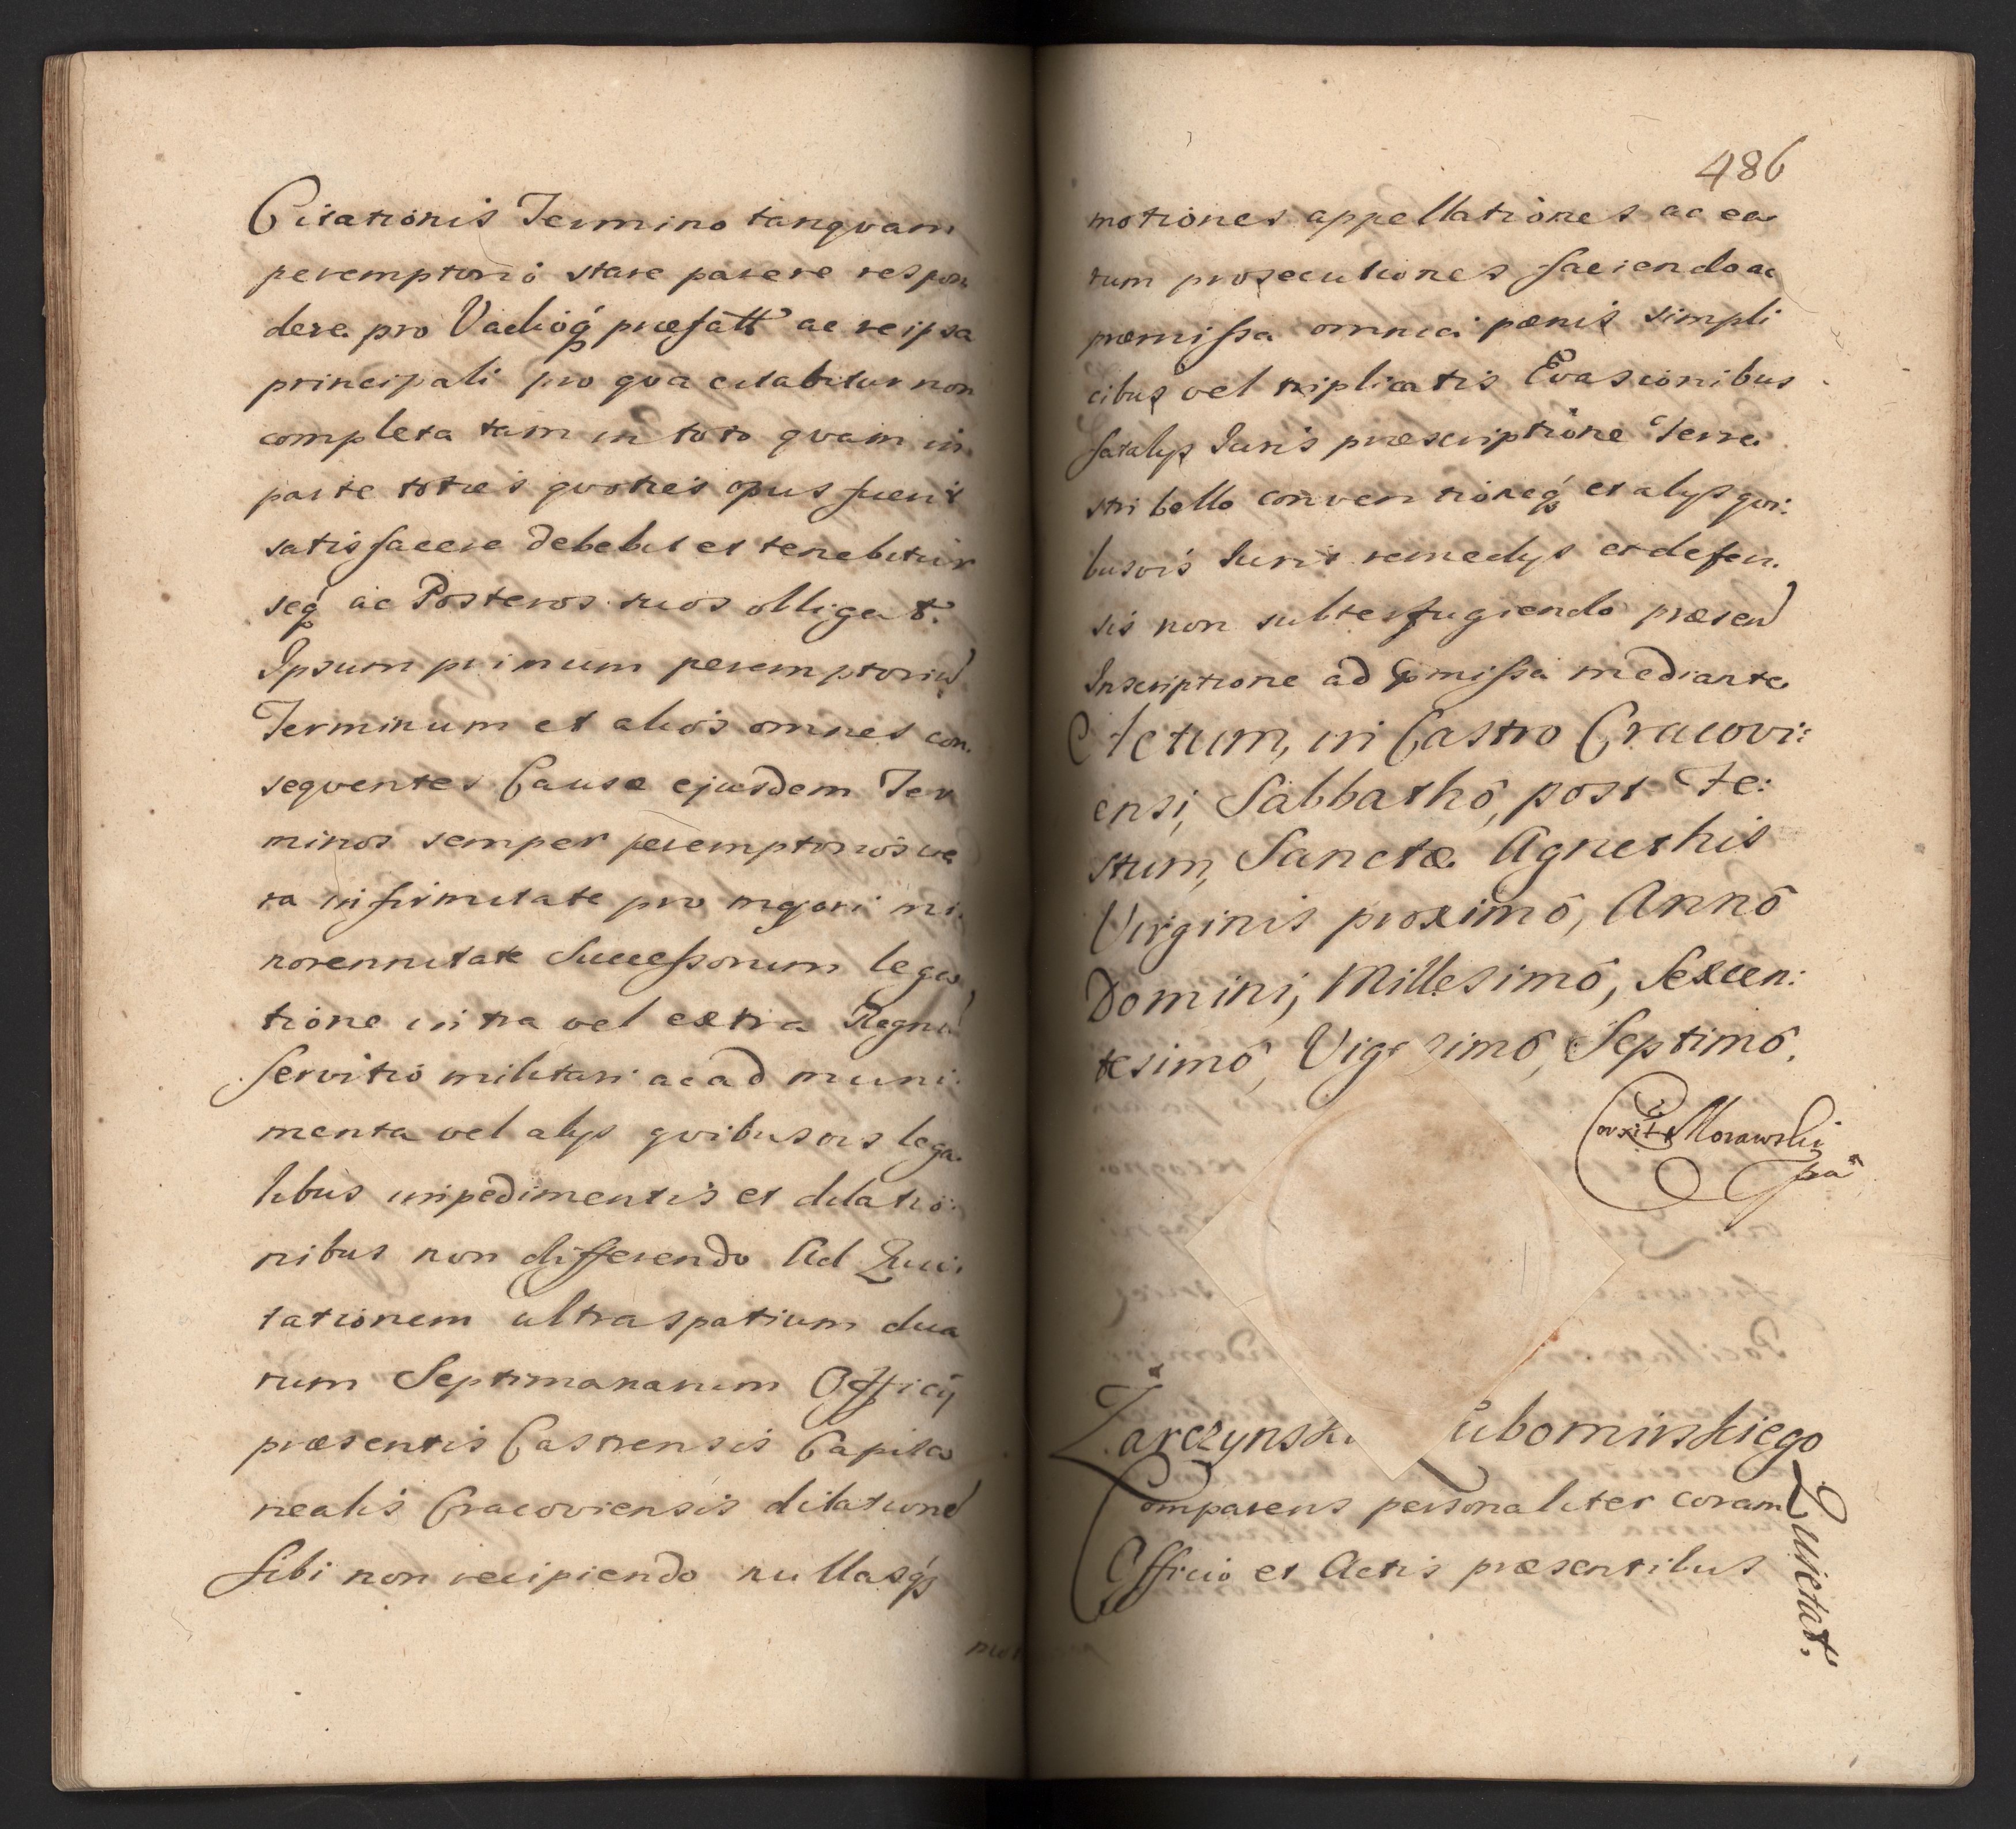 Citationis Termino tanqvam
peremptorió stare parere respon
dere pro Vadioq́ præfatt ac re ipsa
principali pro qva citabitur non
completa tam in toto qvam in
parte toties qvoties opus fuerit
satisfacere debebit et tenebitur
seq́ ac Posteros suos obligat.
Ipsum primum peremptoriu
Terminum et alios omnes con
seqventes Causæ ejusdem Ter
minos semper peremptorios ve
ra infirmitate pro majori mi
norennitate Successorum lega
tione intra vel extra Regnu
Servitió militari ac ad muni
menta vel alys qvibusvis lega
libus impedimentis et dilatio
nibus non differendo Ad Qui
tationem ultra spatium dua
rum Septimanarum Officij
præsentis Castrensis Capita
nealis Cracoviensis dilatione
Sibi non recipiendo nullasq́
mo
486
motiones appellationes ac ea
rum prosecutiones faciendo ac
præmissa omnia pœnis simpli
cibus vel triplicatis Evasionibus
fatalys Juris præscriptione Terre
stri bello conventioneq́ et alys qvi:
busvis Juris remedys et defen
sis non subterfugiendo præsen
Inscriptione ad pmissa mediante
Actum, in Castro Cracovi:
ensi, Sabbathô, post Fe:
stum, Sanctæ Agnethis
Virginis proximô, Annô
Domini, Millesimô, Sexcen:
tesimô, Vige simô, Septimô.
Corxit Morawski
mpa
Żarczynski Lubomirskiego
Comparens personaliter coram
Officio et Actis præsentibus
Quietat.